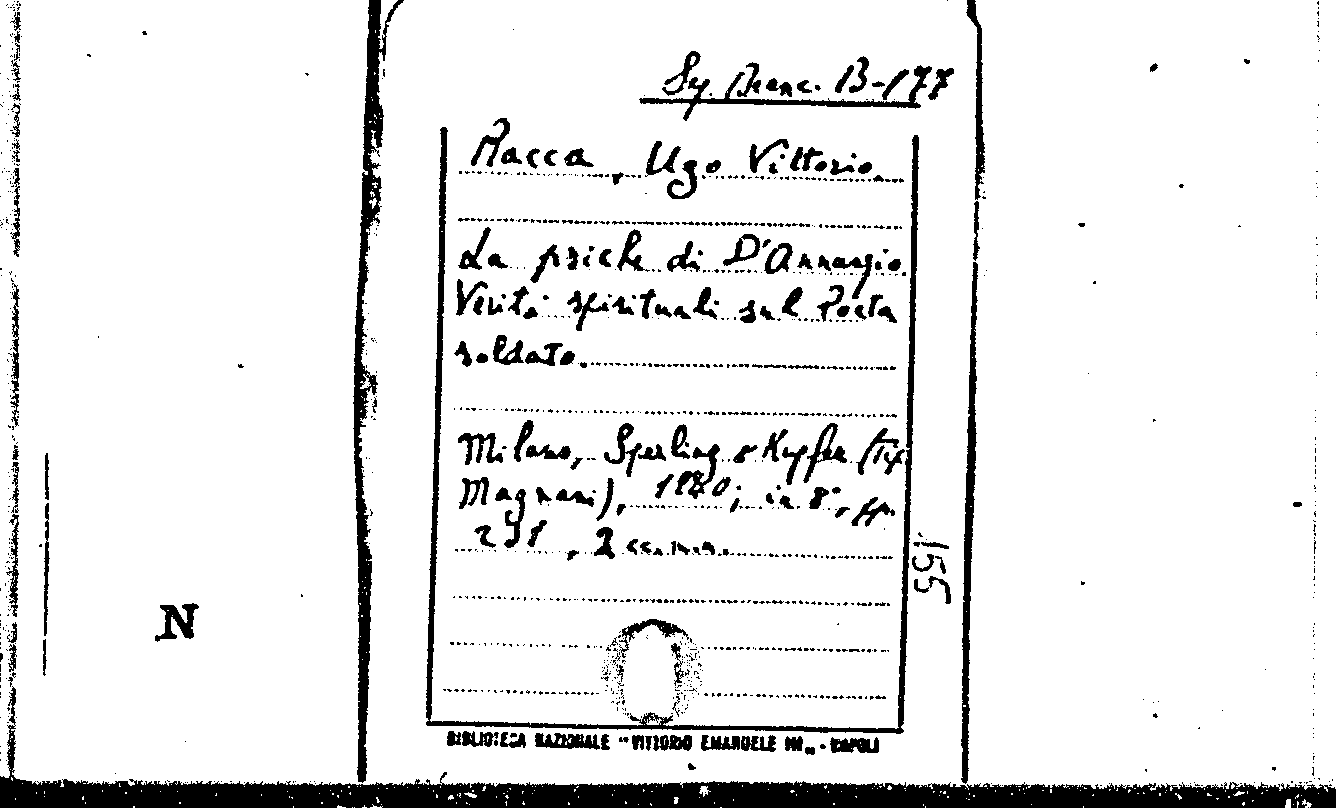 Sy. Branc. B-177
Macca, Ugo Vittorio.
La psiche di D'Annunzio.
Verità spirituali sul Poeta
soldato.
Milano, Sperling & Kupfer (Tip.
Magnani), 1940; in 8°, pp.
231,
155
N
BIBLIOTECA NAZIONALE "VITTORIO EMANUELE III" - NAPOLI